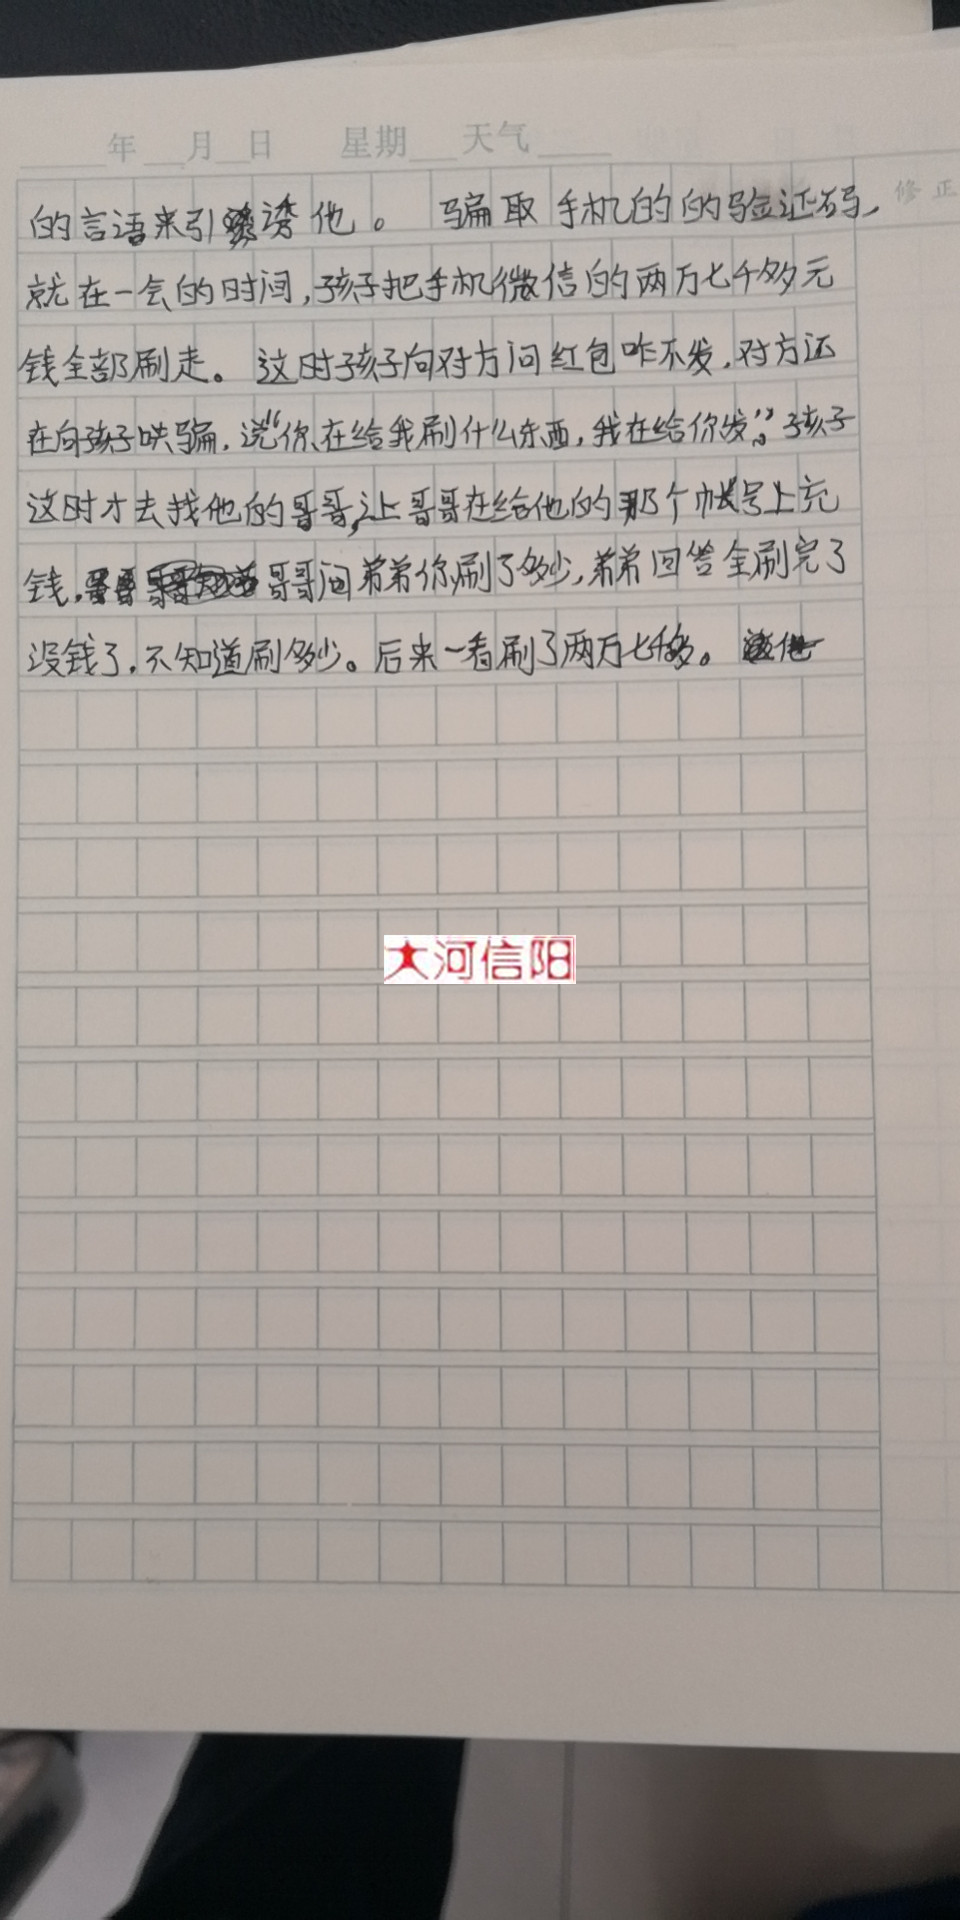 年 月 日 星期 天气
修正
的言语来引诱他。 骗取手机的的验证码,
就在一会的时间,孩子把手机微信的两万七千多元
钱全部刷走。这时孩子向对方问红包咋不发,对方还
在向孩子哄骗,说“你在给我刷什么东西,我在给你发”。孩子
这时才去找他的哥哥,让哥哥在给他的那个帐号上充
钱,哥哥问弟弟你刷了多少,弟弟回答全刷完了
没钱了,不知道刷多少。后来一看刷了两万七千多。
大河信阳